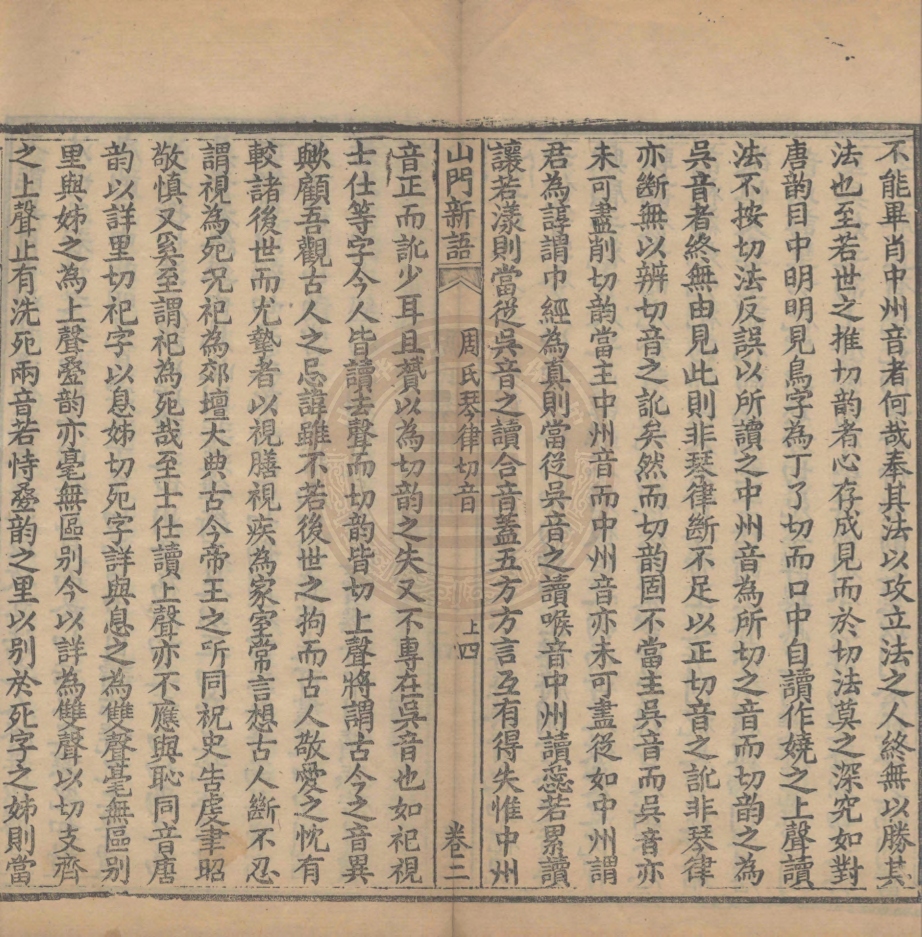 不能畢肖中州音者何哉奉其法以攻立法之人終無以勝其
法也至若世之推切韵者心存成見而於切法莫之深究如對
唐韵目中明明見鳥字為丁了切而口中自讀作嬈之上聲讀
法不按切法反誤以所讀之中州音為所切之音而切韵之為
吳音者終無由見此則非琴律斷不足以正切音之訛非琴律
亦斷無以辨切音之訛矣然而切韵固不當主吳音而吳音亦
未可盡削切韵當主中州音而中州音亦未可盡從如中州謂
君為諄謂巾經為真則當從吳音之讀喉音中州讀蕊若累讀
讓若漾則當從吳音之讀合音蓋五方方言互有得失惟中州
山門新語 周氏琴律切音 上四 卷二
音正而訛少耳且贇以為切韵之失又不專在吳音也如祀視
士仕等字今人皆讀去聲而切韵皆切上聲將謂古今之音異
歟顧吾觀古人之忌諱雖不若後世之拘而古人敬愛之忱有
較諸後世而尤摯者以視膳視疾為家室常言想古人斷不忍
謂視為死況祀為郊壇大典古今帝王之所同祝史告虔聿昭
敬慎又奚至謂祀為死哉至士仕讀上聲亦不應與恥同音唐
韵以詳里切祀字以息姊切死字詳與息之為雙聲毫無區別
里與姊之為上聲疊韵亦毫無區別今以詳為雙聲以切支齊
之上聲止有洗死兩音若恃疊韵之里以別於死字之姊則當